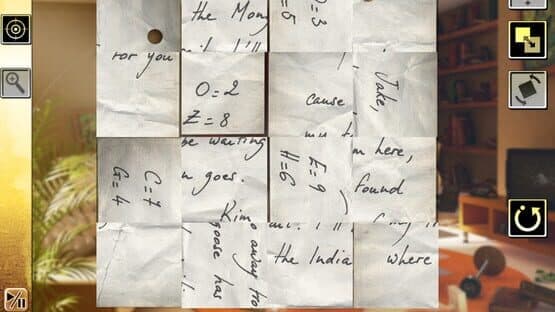 the Mon
=3
=5
for you
O=2
Z=8
cause
Jake,
C=7
G=4
be waiting
goes.
Kim
E=9
H=6
here,
found
away fro
goose has
the India
where